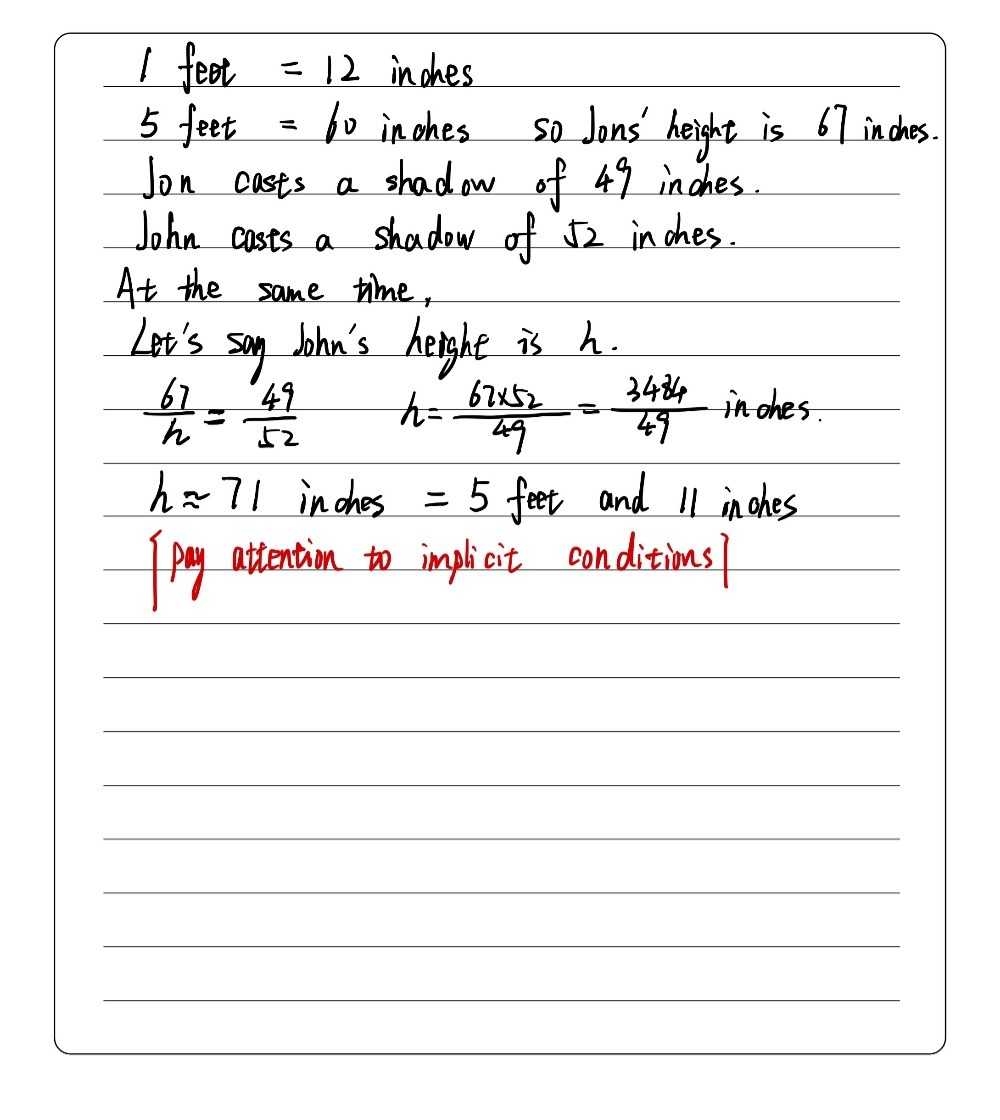 1 feet = 12 inches
5 feet = 60 inches so Jons' height is 67 inches.
Jon casts a shadow of 49 inches.
John casts a shadow of 52 inches.
At the same time,
Let's say John's height is h.
67/h = 49/52 h= 67×52/49 = 3484/49 inches.
h≈71 inches = 5 feet and 11 inches
[pay attention to implicit conditions]